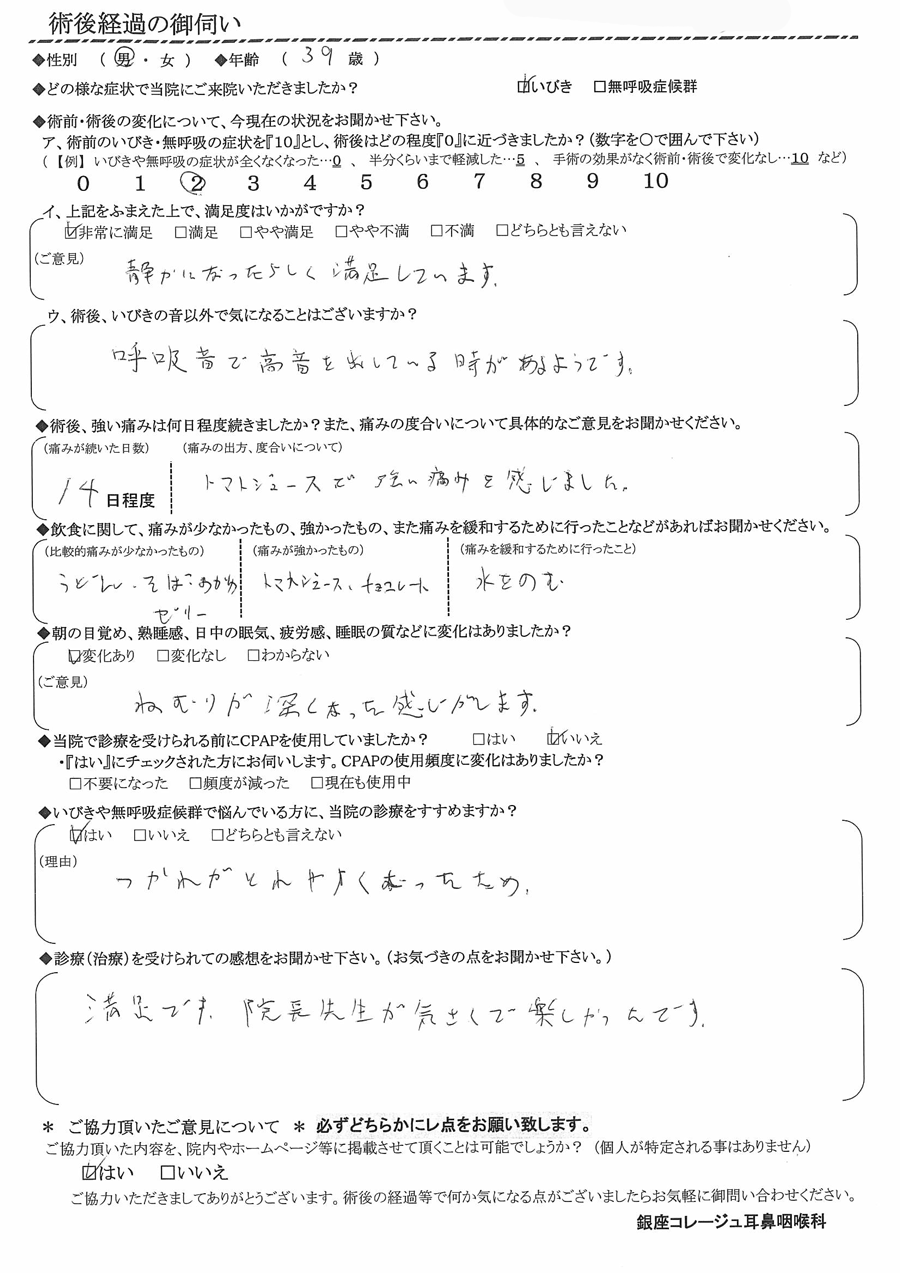 術後経過の御伺い
◆性別 ( 男 ・ 女 ) ◆年齢 ( 39 歳 )
◆どの様な症状で当院にご来院いただきましたか? ☑いびき □無呼吸症候群
◆術前・術後の変化について、今現在の状況をお聞かせ下さい。
ア、術前のいびき・無呼吸の症状を『10』とし、術後はどの程度『0』に近づきましたか?(数字を○で囲んで下さい)
(【例】いびきや無呼吸の症状が全くなくなった…0 、 半分くらいまで軽減した…5 、 手術の効果がなく術前・術後で変化なし…10 など)
0 1 2 3 4 5 6 7 8 9 10
イ、上記をふまえた上で、満足度はいかがですか?
☑非常に満足 □満足 □やや満足 □やや不満 □不満 □どちらとも言えない
(ご意見)
静かになったらしく満足しています。
ウ、術後、いびきの音以外で気になることはございますか?
呼吸音で高音を出している時があるようです。
◆術後、強い痛みは何日程度続きましたか?また、痛みの度合いについて具体的なご意見をお聞かせください。
(痛みが続いた日数) (痛みの出方、度合いについて)
14日程度 トマトジュースで強い痛みを感じました。
◆飲食に関して、痛みが少なかったもの、強かったもの、また痛みを緩和するために行ったことなどがあればお聞かせください。
(比較的痛みが少なかったもの) (痛みが強かったもの) (痛みを緩和するために行ったこと)
うどん、そば、おかゆ トマトジュース、チョコレート 水をのむ
ゼリー
◆朝の目覚め、熟睡感、日中の眠気、疲労感、睡眠の質などに変化はありましたか?
☑変化あり □変化なし □わからない
(ご意見)
ねむりが深くなった感じがします。
◆当院で診療を受けられる前にCPAPを使用していましたか? □はい ☑いいえ
・『はい』にチェックされた方にお伺いします。CPAPの使用頻度に変化はありましたか?
□不要になった □頻度が減った □現在も使用中
◆いびきや無呼吸症候群で悩んでいる方に、当院の診療をすすめますか?
☑はい □いいえ □どちらとも言えない
(理由)
つかれがとれやすくなったため。
◆診療(治療)を受けられての感想をお聞かせ下さい。(お気づきの点をお聞かせ下さい。)
満足です。院長先生が気さくで楽しかったです。
＊ ご協力頂いたご意見について ＊ 必ずどちらかにレ点をお願い致します。
ご協力頂いた内容を、院内やホームページ等に掲載させて頂くことは可能でしょうか? (個人が特定される事はありません)
☑はい □いいえ
ご協力いただきましてありがとうございます。術後の経過等で何か気になる点がございましたらお気軽に御問い合わせください。
銀座コレージュ耳鼻咽喉科